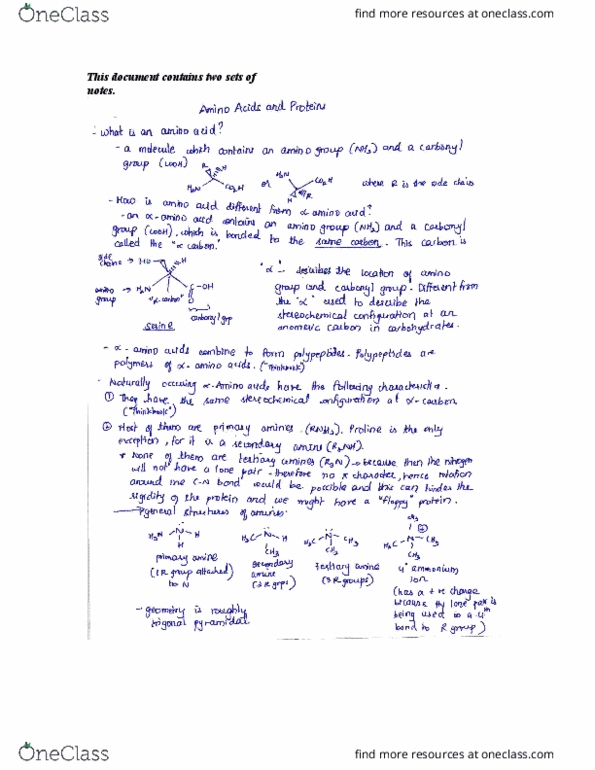 OneClass
find more resources at oneclass.com
This document contains two sets of
notes.
Amino Acids and Proteins
- What is an amino acid?
- a molecule which contains an amino group (NH2) and a carbonyl
group (COOH)
R H
H2N CO2H or H2N CO2H H R where R is the side chain
- How is amino acid different from α amino acid?
- an α-amino acid contains an amino group (NH2) and a carbonyl
group (COOH), which is bonded to the same carbon. This carbon is
called the "α carbon."
side chain → HO H
amino group → H2N C - OH
"α-carbon" O
carbonyl grp
serine
"α" - describes the location of amino
group and carbonyl group. Different from
the "α" used to describe the
stereochemical configuration at an
anomeric carbon in carbohydrates.
- α-amino acids combine to form polypeptides. Polypeptides are
polymers of α-amino acids. ("Thinkbook")
· Naturally occuring α-Amino acids have the following characteristics.
① They have the same stereochemical configuration at α-carbon
("Thinkbook")
② Most of them are primary amines (RNH2). Proline is the only
exception, for it is a secondary amine (R2NH)
* None of them are tertiary amines (R3N) → because then the nitrogen
will not have a lone pair - therefore no π character, hence rotation
around the C-N bond would be possible and this can hinder the
rigidity of the protein and we might have a "floppy" protein.
general structures of amines:
H3C - N - H
H
primary amine
(1 R group attached
to N
H3C N H
CH3
secondary
amine
(2 R grps)
H3C - N - CH3
CH3
Tertiary amine
(3 R groups)
CH3
H3C - N - CH3
CH3
4° ammonium
ion
(has a +ve charge
because the lone pair is
being used in a 4th
bond to R group)
- geometry is roughly
trigonal pyramidal
OneClass
find more resources at oneclass.com